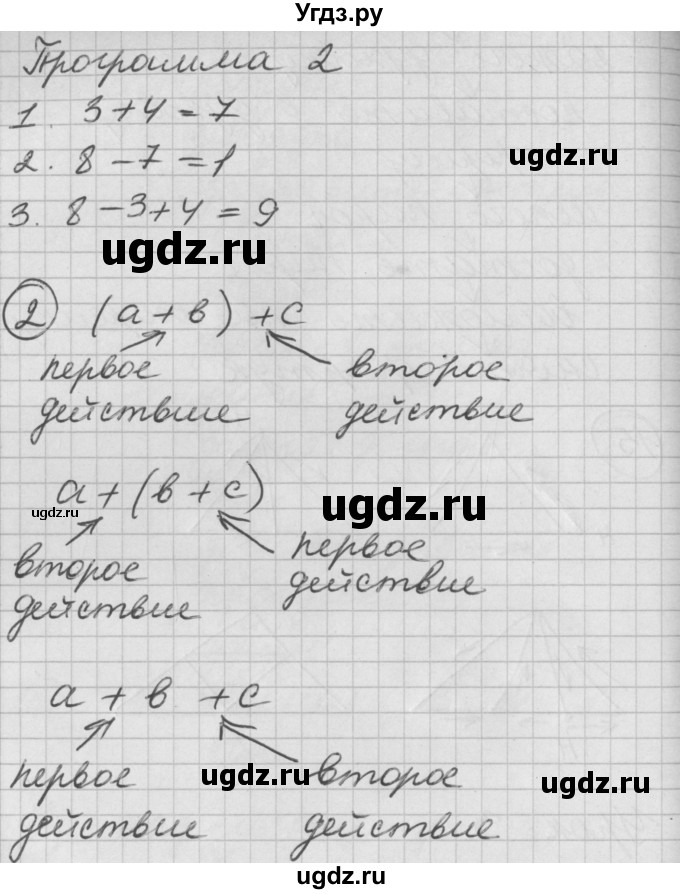 Угдз.ру
Программа 2
1. 3+4=7
ugdz.ru
2. 8-7=1
3. 8-3+4=9
ugdz.ru
2 (а+в)+с
первое второе
действие действие
а+(в+с)
ugdz.ru
ugdz.ru
второе первое
действие действие
а+в+с
первое второе
ugdz.ru
ugdz.ru
действие действие
ugdz.ru